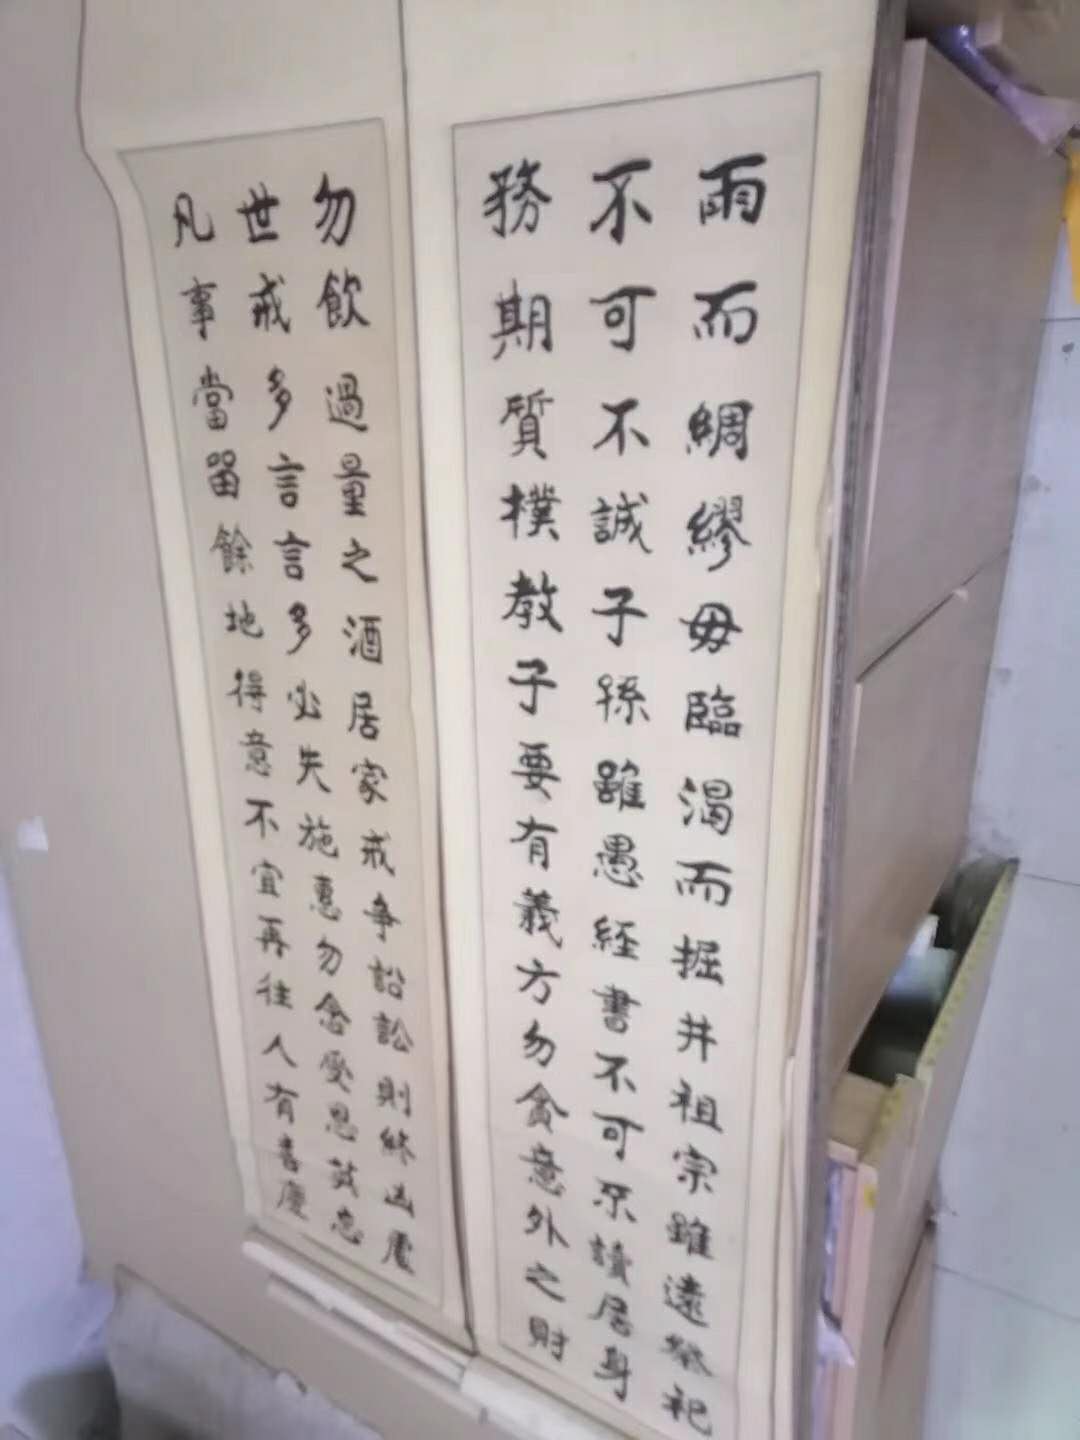 雨而綢繆毋臨渴而掘井祖宗雖遠祭祀
不可不誠子孫雖愚經書不可不讀居身
務期質樸教子要有義方勿貪意外之財
勿飲過量之酒居家戒爭訟訟則終凶處
世戒多言言多必失施惠勿念受恩莫忘
凡事當留餘地得意不宜再往人有喜慶